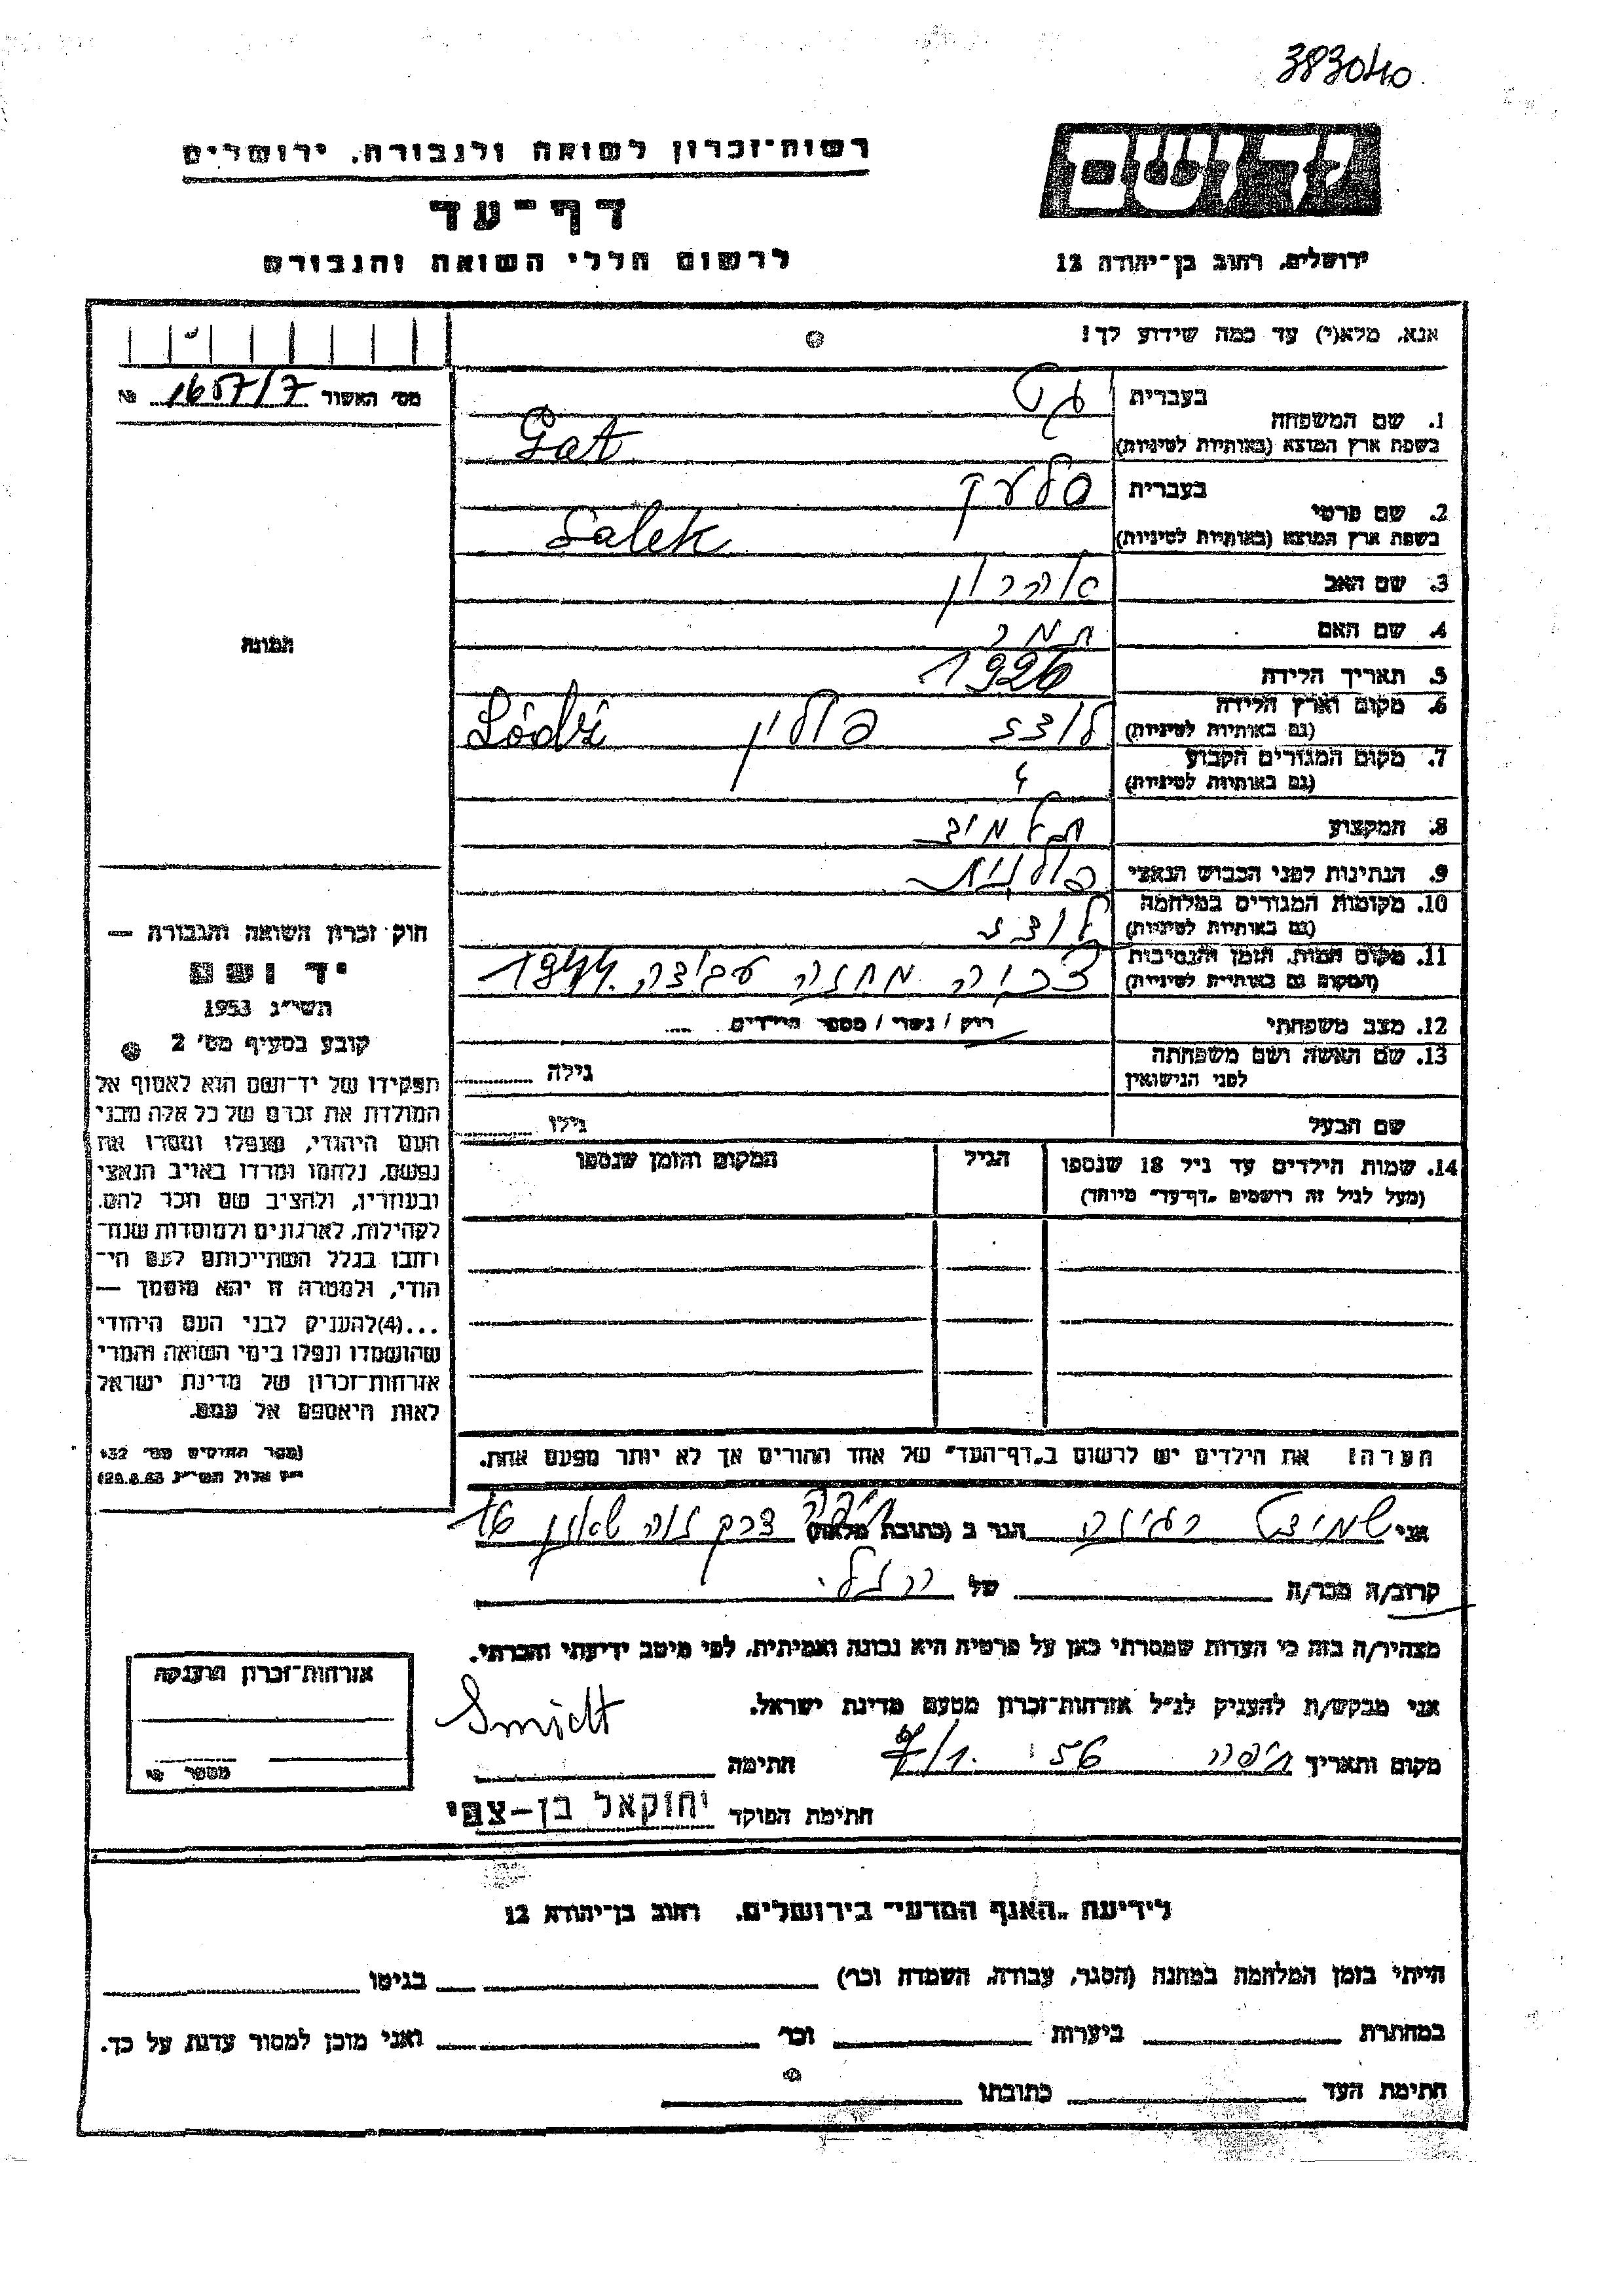 383040
רשות־זכרון לשואה ולגבורה, ירושלים
דף־עד
לרשום חללי השואה והגבורה
יד ושם
ירושלים, רחוב בן־יהודה 12
אנא, מלא(י) עד כמה שידוע לך!
מס׳ האשור 1657/7 №
תמונה
1. שם המשפחה
בעברית
בשפת ארץ המוצא (באותיות לטיניות) Gat
2. שם פרטי
בעברית סלעק
בשפת ארץ המוצא (באותיות לטיניות) Salek
3. שם האב אהרון
4. שם האם תמר
5. תאריך הלידה 1926
6. מקום וארץ הלידה (גם באותיות לטיניות) לודז פולין Łódź
7. מקום המגורים הקבוע (גם באותיות לטיניות)
8. המקצוע תלמיד
9. הנתינות לפני הכבוש הנאצי פולנית
10. מקומות המגורים במלחמה (גם באותיות לטיניות) לודז
11. מקום המות, הזמן והנסיבות (המקום גם באותיות לטיניות) מחנה עבודה 1944
12. מצב משפחתי רווק / נשוי / מספר הילדים
13. שם האשה ושם משפחתה לפני הנישואין גילה
שם הבעל גילו
14. שמות הילדים עד גיל 18 שנספו הגיל המקום והזמן שנספו
(מעל לגיל זה רושמים „דף־עד״ מיוחד)
חוק זכרון השואה והגבורה —
יד ושם
תשי״ג 1953
קובע בסעיף מס׳ 2
תפקידו של יד־ושם הוא לאסוף אל
המולדת את זכרם של כל אלה מבני
העם היהודי, שנפלו ומסרו את
נפשם, נלחמו ומרדו באויב הנאצי
ובעוזריו, ולהציב שם וזכר להם,
לקהילות, לארגונים ולמוסדות שנח־
רבו בגלל השתייכותם לעם הי־
הודי, ולמטרה זו יהא מוסמך —
...(4) להעניק לבני העם היהודי
שהושמדו ונפלו בימי השואה והמרי
אזרחות־זכרון של מדינת ישראל
לאות היאספם אל עמם.
(ספר החוקים מס׳ 132
י״ז אלול תשי״ג 28.8.53)
הערה: את הילדים יש לרשום ב„דף־העד״ של אחד ההורים אך לא יותר מפעם אחת.
אני שמידט הגר ב (כתובת מלאה) חיפה 16
קרוב/ה מכר/ה של
מצהיר/ה בזה כי העדות שמסרתי כאן על פרטיה היא נכונה ואמיתית, לפי מיטב ידיעתי והכרתי.
אני מבקש/ת להעניק לנ״ל אזרחות־זכרון מטעם מדינת ישראל.
Smidt
מקום ותאריך חיפה 56 חתימה
חתימת הפוקד יחזקאל בן-צבי
אזרחות־זכרון הוענקה
מספר
לידיעת „האגף המדעי״ בירושלים, רחוב בן־יהודה 12
הייתי בזמן המלחמה במחנה (הסגר, עבודה, השמדה וכו׳) בגיטו
במחתרת ביערות וכו׳ ואני מוכן למסור עדות על כך.
חתימת העד כתובתו